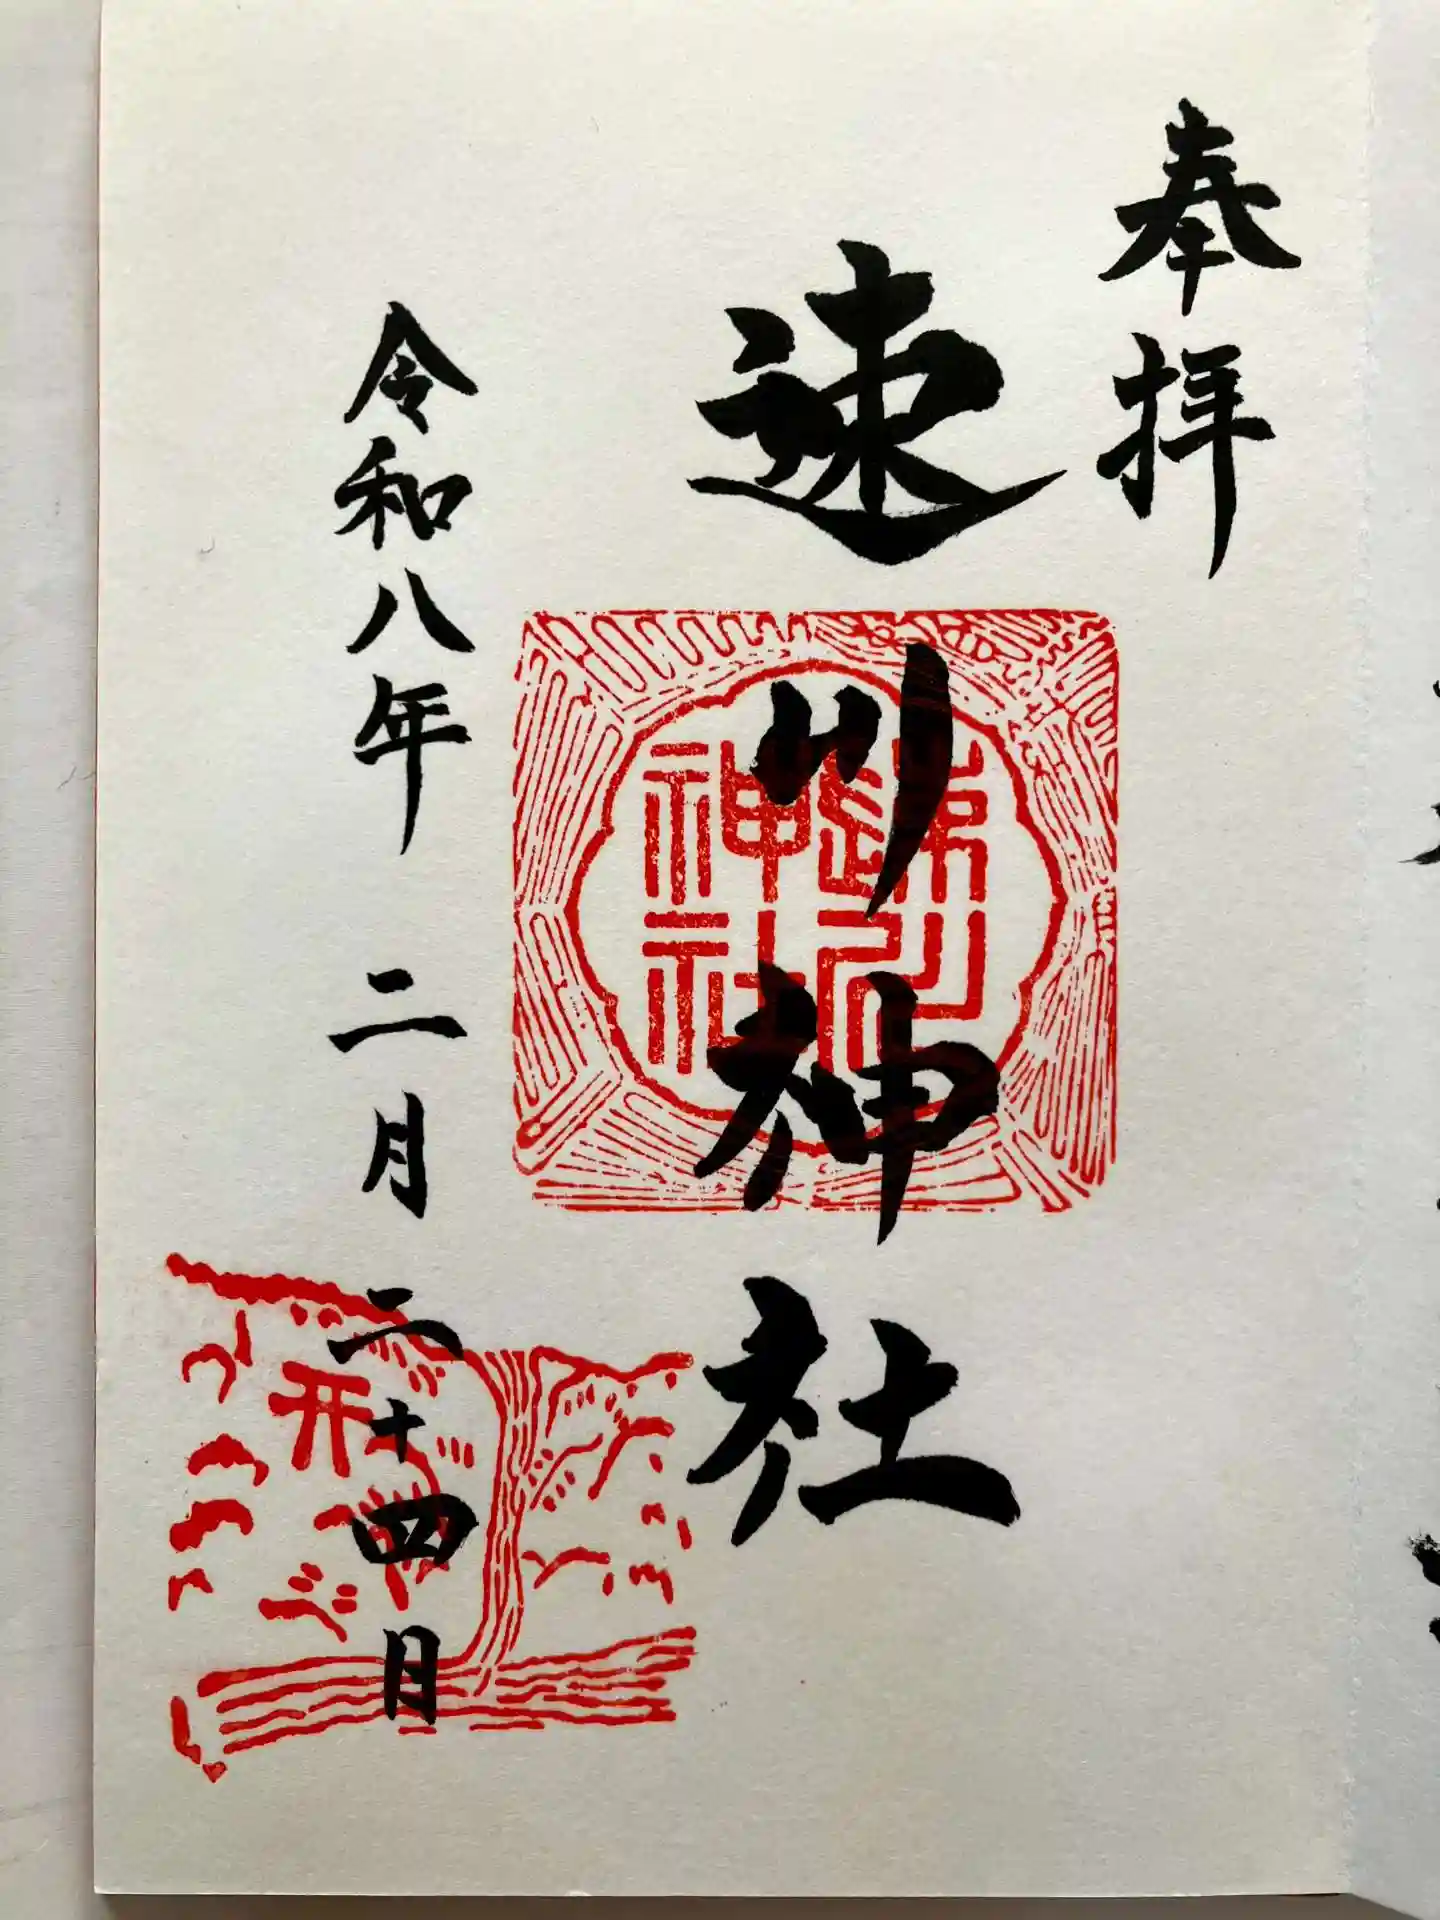 奉拝
速川神社
速川神社
令和八年二月二十四日